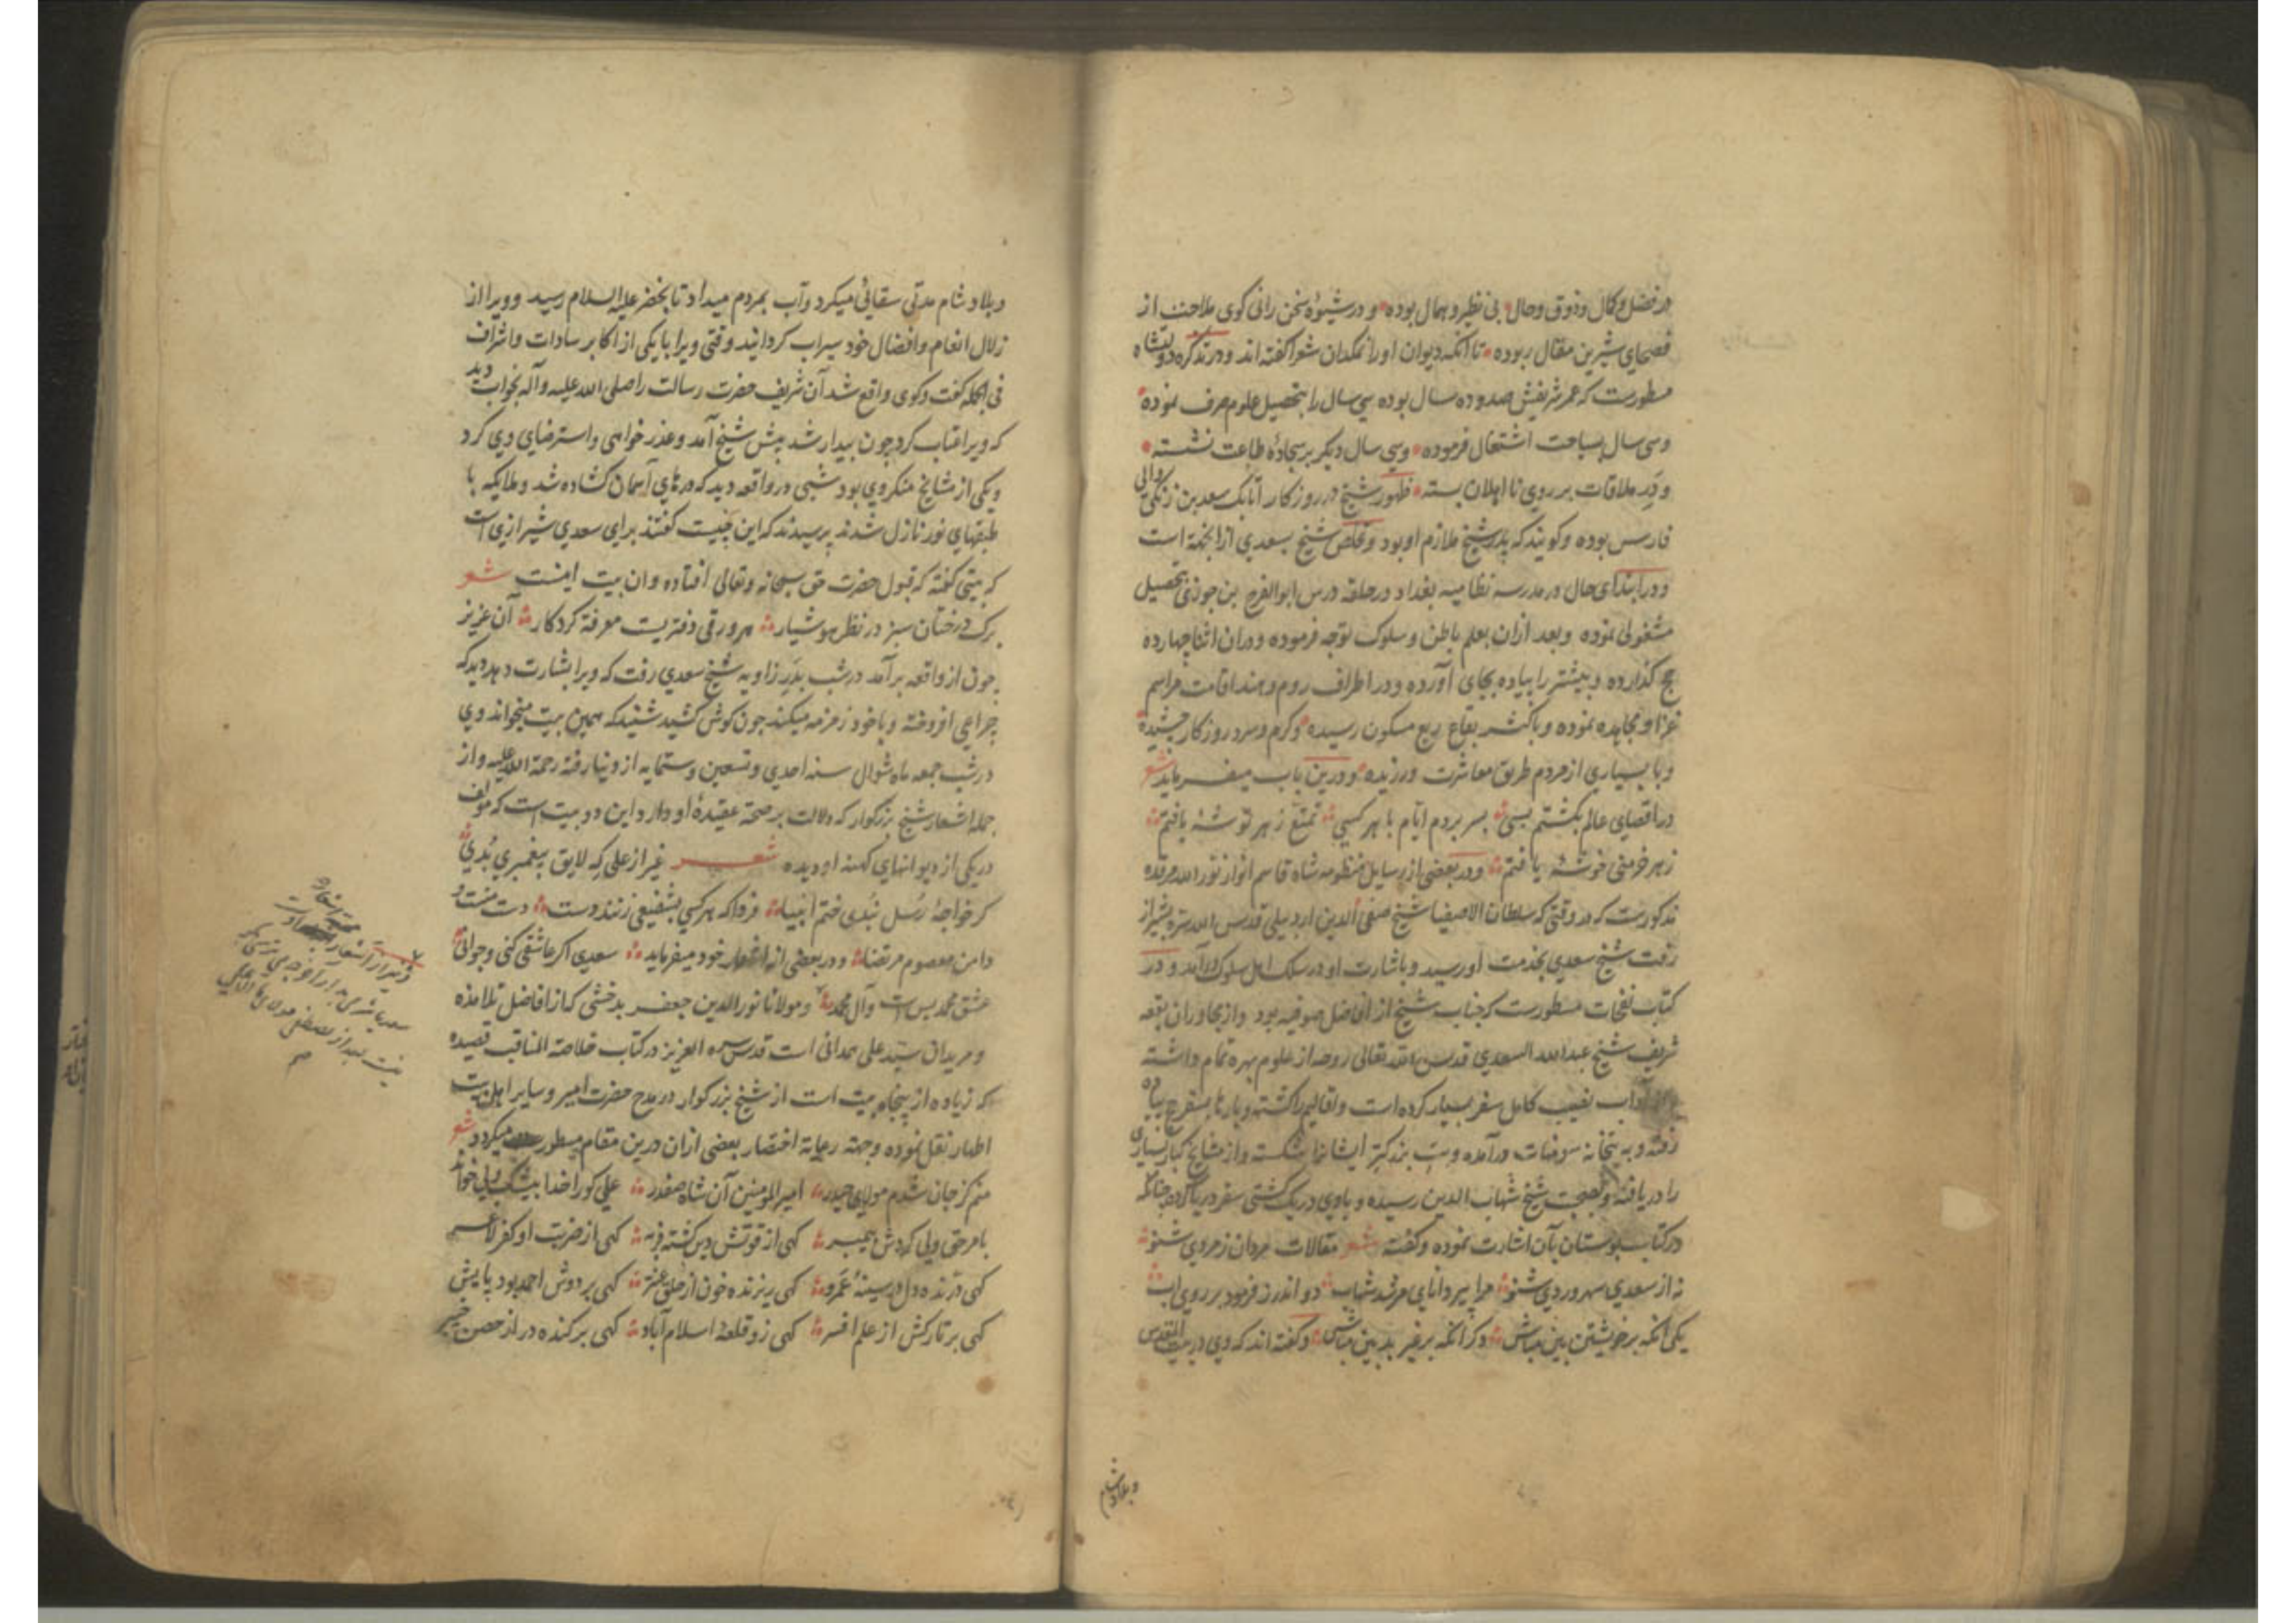 در فضل و کمال و ذوق و حال بی نظیر و همال بوده و در شیوهٔ سخن رانی کوی ملاحت از
فصحای شیرین مقال ربوده تا آنکه دیوان او را نمکدان شعرا کفته اند و در تذکره دولتشاه
مسطورست که عمر شریفش صد و ده سال بوده سی سال را بتحصیل علوم صرف نموده
و سی سال بسیاحت اشتغال فرموده و سی سال دیکر بر سجادهٔ طاعت نشسته
و در ملاقات بر روی نا اهلان بسته ظهور شیخ در روزکار اتابک سعد بن زنکی والی
فارس بوده و کویند که پدر شیخ ملازم او بود و تخلص شیخ بسعدی ازانجهة است
و در ابتدای حال در مدرسه نظامیه بغداد در حلقه درس ابوالفرح بن جوزی بتحصیل
مشغولی نموده و بعد ازان بعلم باطن و سلوک توجه فرموده و دران اثنا چهارده
حج کذارده و بیشتر را پیاده بجای آورده و در اطراف روم و هند اقامت مراسم
غزا و مجاهده نموده و باکثر بقاع ربع مسکون رسیده و کرم و سرد روزکار چشیده
و با بسیاری از مردم طریق معاشرت ورزیده و درین باب میفرماید شعر
در اقصای عالم بکشتم بسی بسر بردم ایام با هر کسی تمتع ز هر توشهٔ یافتم
ز هر خرمنی خوشهٔ یافتم و در بعضی از رسایل منظومه شاه قاسم انوار نور الله مرقده
مذکورست که در وقتی که سلطان الاصفیا شیخ صفی الدین اردبیلی قدس الله سره بشیراز
رفت شیخ سعدی بخدمت او رسید و باشارت او در سلک اهل سلوک درآمد و در
کتاب نفحات مسطورست که جناب شیخ از افاضل صوفیه بود و از مجاوران بقعه
شریف شیخ عبدالله السعدی قدس الله تعالی روحه از علوم بهره تمام داشته
آداب نصیب کامل سفر بسیار کرده است و اقالیم را کشته و بارها بسفر حج پیاده
رفته و به بتخانه سومنات درآمده و بت بزرکتر ایشانرا شکسته و از مشایخ کبار بسیاری
را دریافته و بصحبت شیخ شهاب الدین رسیده و با وی در یک کشتی سفر دریا کرده چنانکه
در کتاب بوستان بآن اشارت نموده و کفته شعر مقالات مردان ز مردی شنو
نه از سعدی سهروردی شنو مرا پیر دانای مرشد شهاب دو اندرز فرمود بر روی اب
یکی آنکه بر خویشتن بین مباش دکر آنکه بر غیر بد بین مباش و کفته اند که وی در بیت المقدس
و بلاد شام
و بلاد شام مدتی سقائی میکرد و آب بمردم میداد تا بخضر علیه السلام رسید و ویرا از
زلال انعام و افضال خود سیراب کردانید وقتی ویرا با یکی از اکابر سادات و اشراف
فی الجمله کفت و کوی واقع شد آن شریف حضرت رسالت را صلی الله علیه و آله بخواب دید
که ویرا عتاب کرد چون بیدار شد پیش شیخ آمد و عذر خواهی و استرضای وی کرد
و یکی از مشایخ منکر وی بود شبی در واقعه دید که درهای آسمان کشاده شد و ملایکه با
طبقهای نور نازل شدند پرسیدند که این چیست کفتند برای سعدی شیرازی است
که بیتی کفته که قبول حضرت حق سبحانه و تعالی افتاده و ان بیت اینست شعر
برک درختان سبز در نظر هوشیار هر ورقی دفتریست معرفة کردکار آن عزیز
چون از واقعه برآمد در شب بدر زاویه شیخ سعدی رفت که ویرا بشارت دهد دید که
چراغی افروخته و با خود زمزمه میکند چون کوش کشید شنید که همین بیت میخواند وی
در شب جمعه ماه شوال سنه احدی و تسعین و ستمایه از دنیا رفته رحمة الله علیه و از
جمله اشعار شیخ بزرکوار که دلالت بر صحة عقیدهٔ او دارد این دو بیت است که مولف
در یکی از دیوانهای کهنه او دیده شعر غیر از علی که لایق پیغمبری بدی
کر خواجهٔ رسل نبدی ختم انبیا فردا که هر کسی بشفیعی زنند دست دست منست و
دامن معصوم مرتضا و در بعضی از اشعار خود میفرماید سعدی اکر عاشقی کنی و جوانی
عشق محمد بس است و آل محمد و مولانا نور الدین جعفر بدخشی که از افاضل تلامذه
و مریدان سید علی همدانی است قدس سره العزیز در کتاب خلاصة المناقب قصیده
که زیاده از پنجاه بیت است از شیخ بزرکوار در مدح حضرت امیر و سایر اهل بیت
اطهار نقل نموده و جهة رعایة اختصار بعضی ازان درین مقام مسطور میکردد شعر
منم کز جان شدم مولای حیدر امیر المؤمنین آن شاه صفدر علی کو را خدا بیشک ولی خواند
بامر حق ولی کردش پیمبر کهی از قوتش کهی از ضربت او کفر لاغر
کهی درنده دل در سینهٔ عمرو کهی ریزنده خون از حلق عنتر کهی بر دوش احمد بود پایش
کهی بر تارکش از علم افسر کهی زو قلعهٔ اسلام آباد کهی برکنده در از حصن خیبر